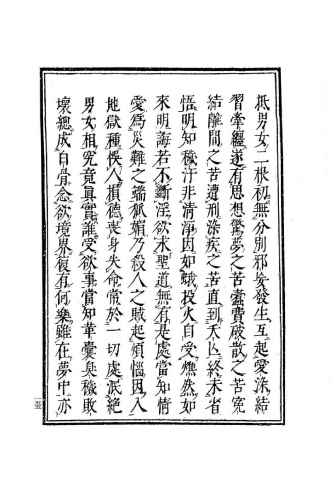 抵男女二根初無分別邪妄發生互起愛染結
習牽纏遂有思想驚夢之苦耗費破散之苦冤
結離間之苦遭刑染疾之苦直到天亡終未省
悟明知穢汙非清淨因如蛾投火自受燋然如
來明誨若不斷淫欲求聖道無有是處當知情
愛爲災難之端狐媚乃殺人之賊起煩惱因入
地獄種悞人損德喪身失命常於一切處泯絕
男女相究竟真實誰受欲事當知革囊臭穢敗
壞總成白骨念欲境界復有何樂雖在夢中亦